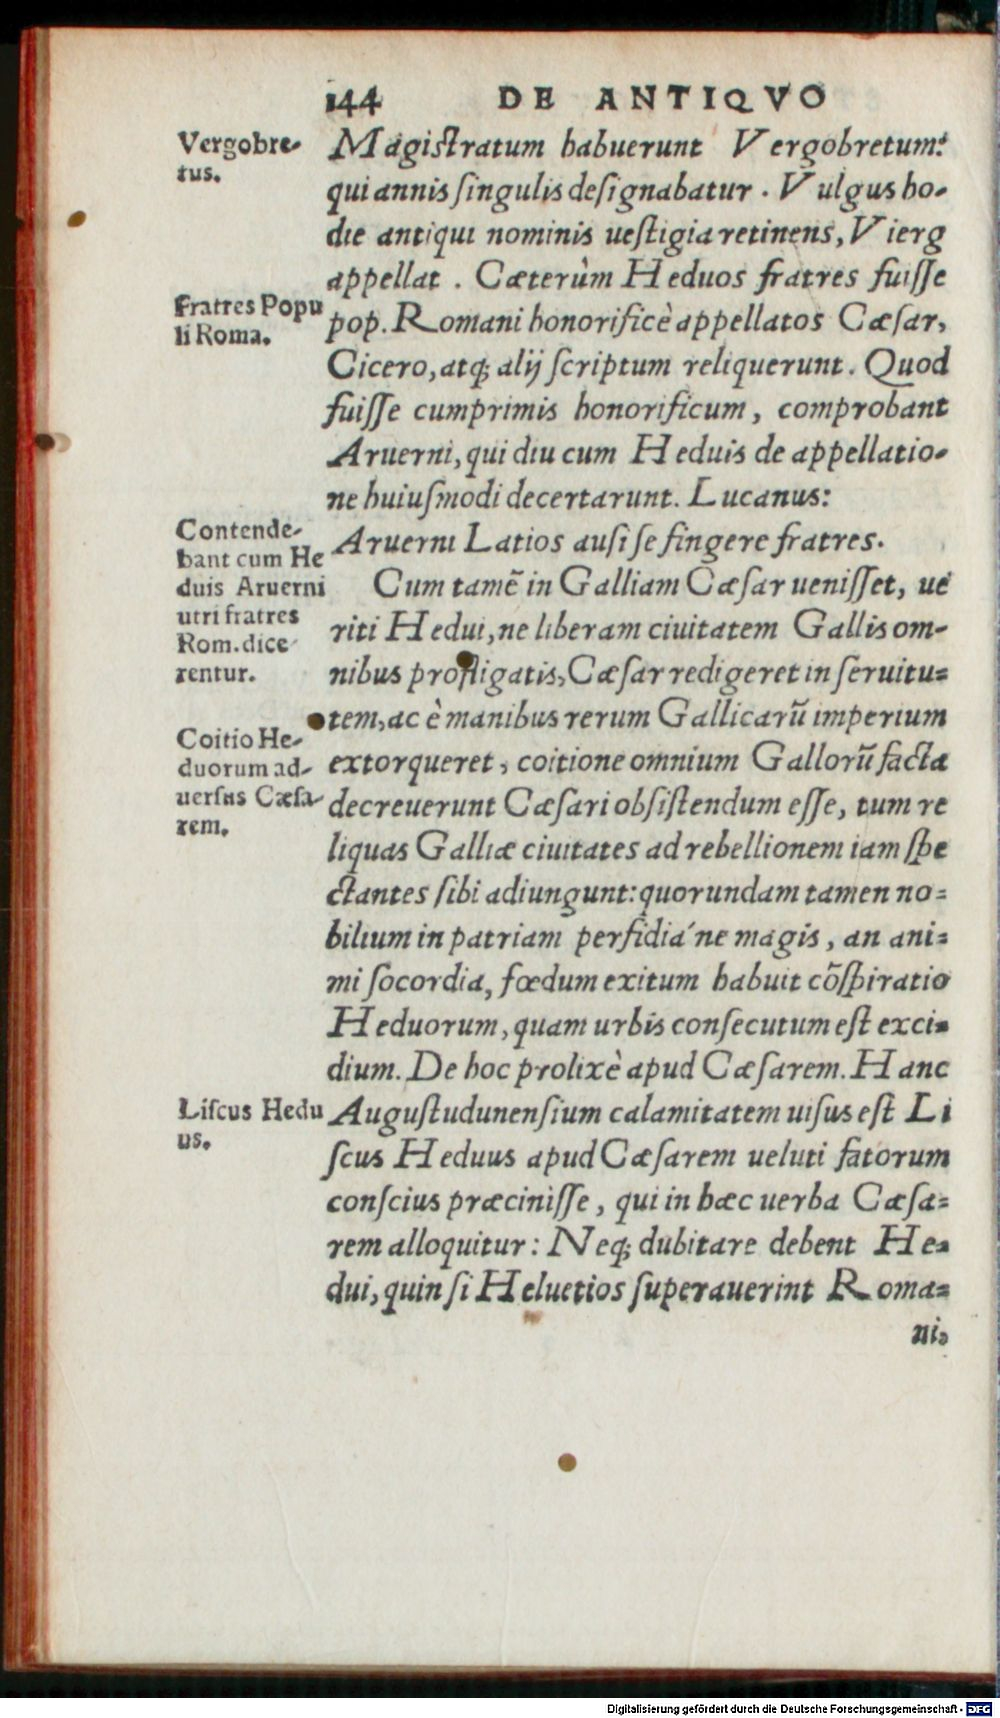 144 DE ANTIQVO
Vergobre-
tus.
Magiſtratum habuerunt Vergobretum:
qui annis ſingulis deſignabatur. Vulgus ho-
die antiqui nominis ueſtigia retinens, Vierg
appellat. Cæterùm Heduos fratres fuiſſe
Fratres Popu
li Roma.
pop. Romani honorificè appellatos Cæſar,
Cicero, atq; alij ſcriptum reliquerunt. Quod
fuiſſe cumprimis honorificum, comprobant
Aruerni, qui diu cum Heduis de appellatio-
ne huiuſmodi decertarunt. Lucanus:
Contende-
bant cum He
duis Aruerni
utri fratres
Rom. dice
rentur.
Aruerni Latios auſi ſe fingere fratres.
Cum tamẽ in Galliam Cæſar ueniſſet, ue
riti Hedui, ne liberam ciuitatem Gallis om-
nibus profligatis, Cæſar redigeret in ſeruitu-
tem, ac è manibus rerum Gallicarũ imperium
Coitio He-
duorum ad-
uerſus Cæſa-
rem.
extorqueret, coitione omnium Gallorũ facta
decreuerunt Cæſari obſiſtendum eſſe, tum re
liquas Galliæ ciuitates ad rebellionem iam ſpe
ctantes ſibi adiungunt: quorundam tamen no-
bilium in patriam perfidiá ne magis, an ani-
mi ſocordia, fœdum exitum habuit cõſpiratio
Heduorum, quam urbis conſecutum eſt exci-
dium. De hoc prolixè apud Cæſarem. Hanc
Liſcus Hedu
us.
Auguſtudunenſium calamitatem uiſus eſt Li
ſcus Heduus apud Cæſarem ueluti fatorum
conſcius præciniſſe, qui in hæc uerba Cæſa-
rem alloquitur: Neq; dubitare debent He-
dui, quin ſi Heluetios ſuperauerint Roma-
ni,
Digitalisierung gefördert durch die Deutsche Forschungsgemeinschaft - DFG